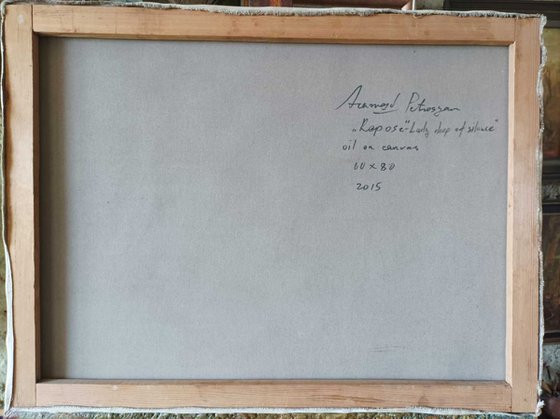 Aramayd Petrosyan
„Repose-Lady deep of silence"
oil on canvas
60 x 80
2015